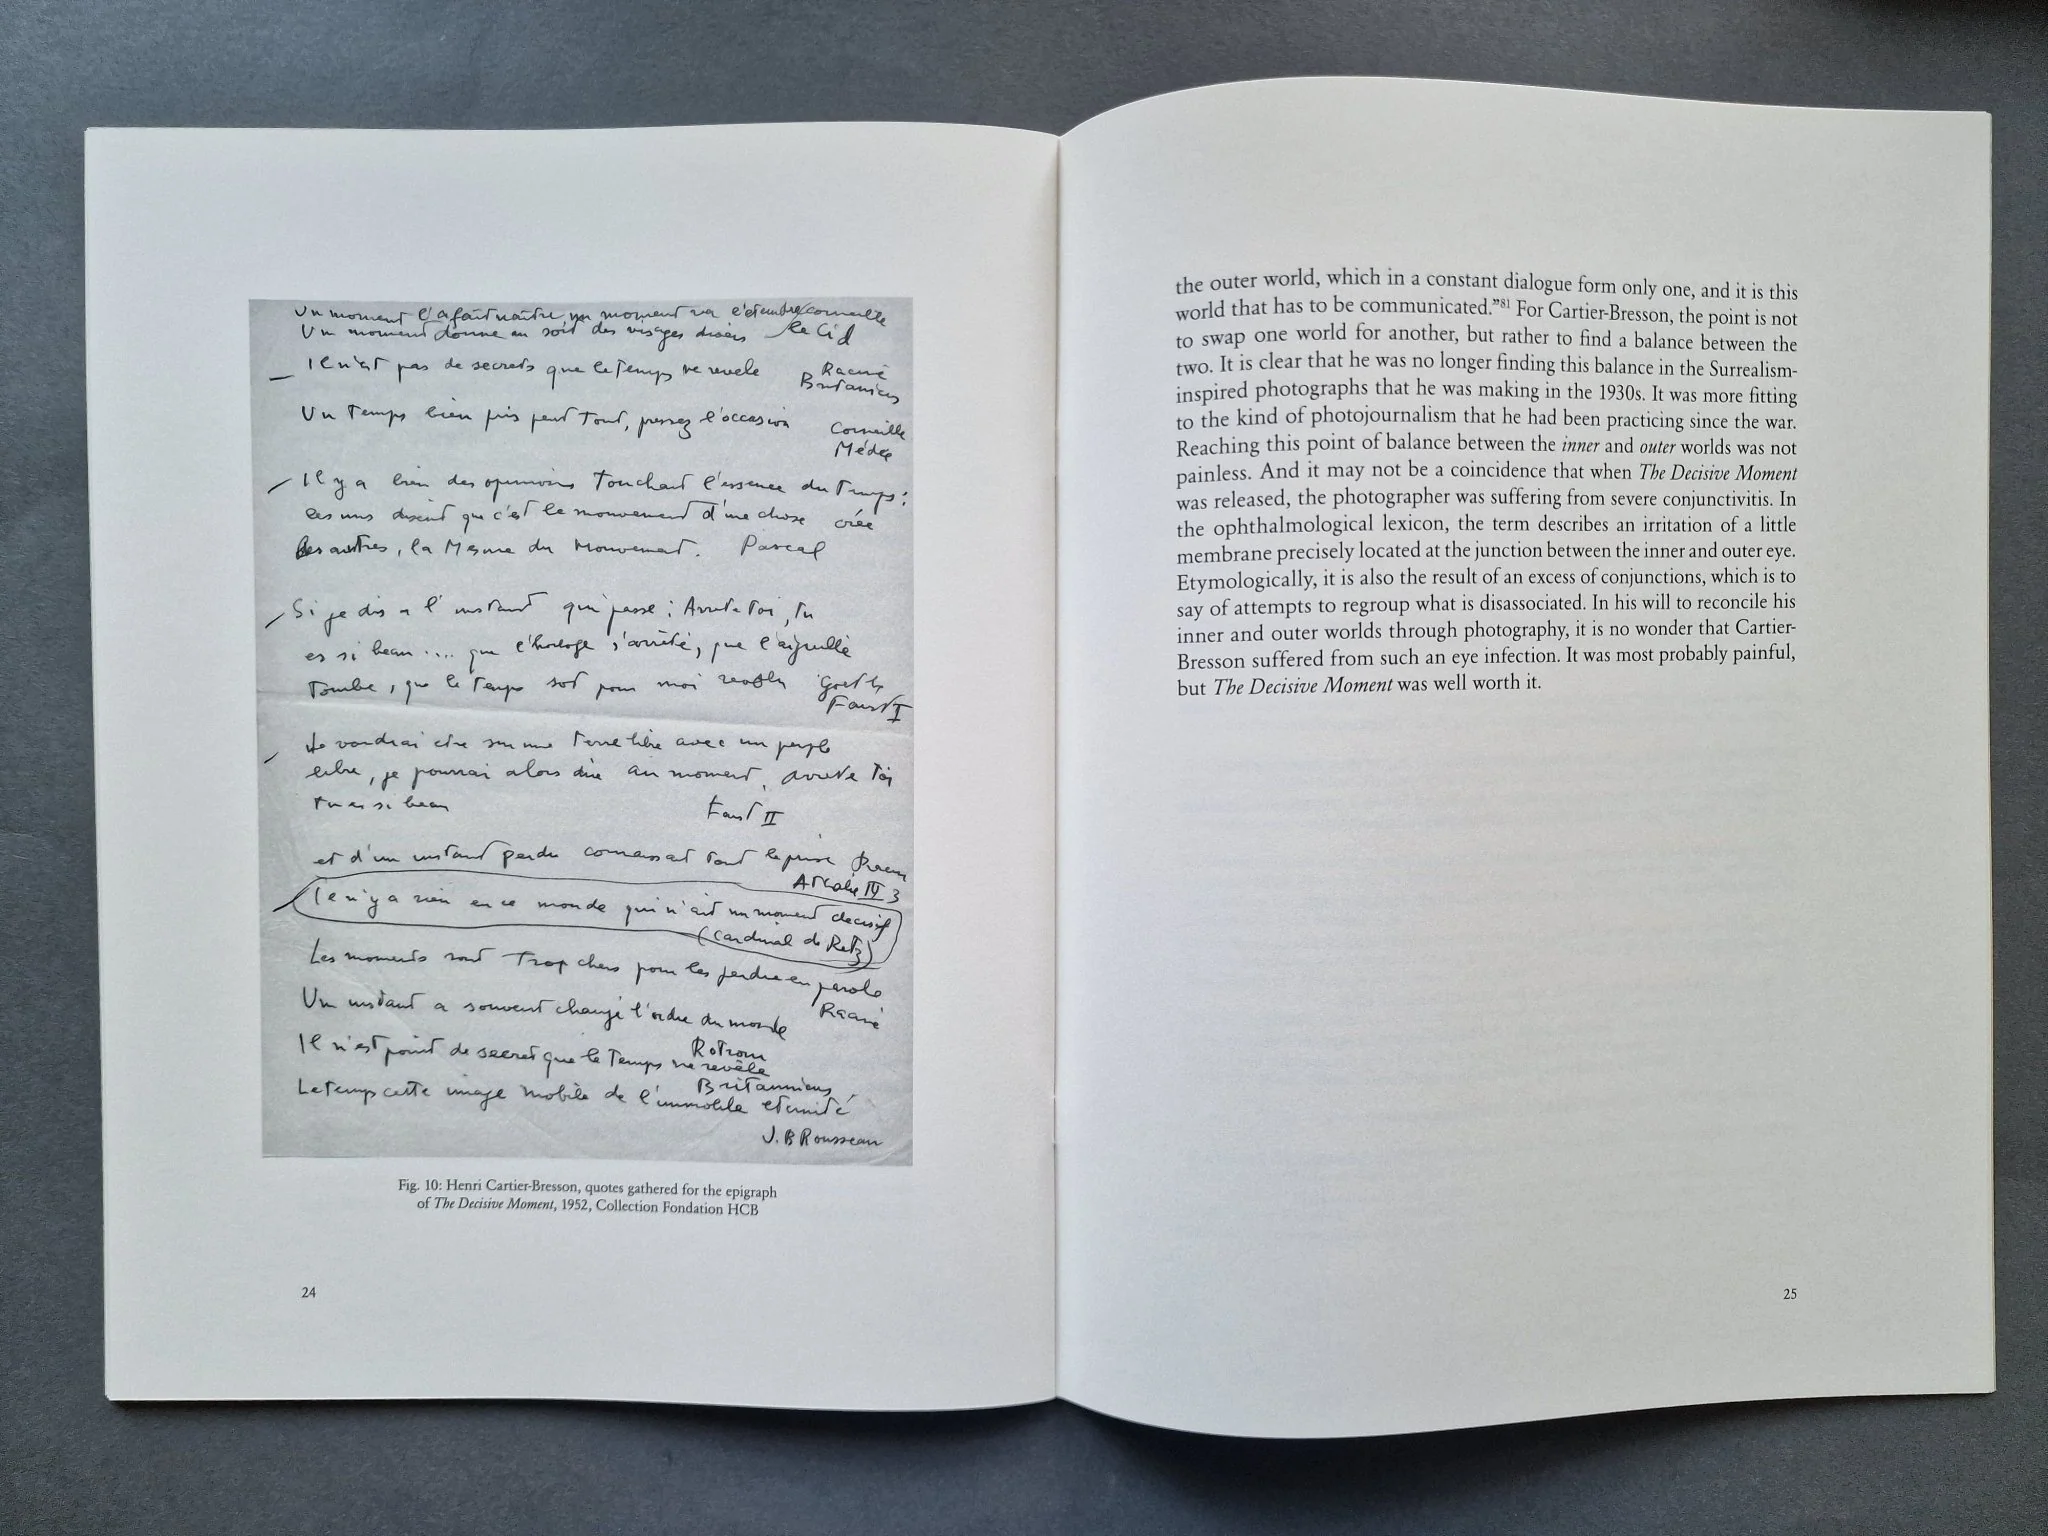 Un moment l'a fait naître, un moment va l'éteindre Corneille
Un moment donne au soit des visages divers le Cid
Il n'est pas de secrets que le temps ne revele Racine
Britanicus
Un temps bien pris peut tout, pressez l'occasion Corneille
Médée
Il y a bien des opinions touchant l'essence du temps :
les uns disent que c'est le mouvement d'une chose créée
les autres, la Mesure du Mouvement. Pascal
Si je dis a l'instant qui passe : Arrete toi, tu
es si beau .... que l'horloge s'arrête, que l'aiguille
tombe, que le temps soit pour moi Goethe
Faust I
Je voudrai etre sur une terre libre avec un peuple
libre, je pourrai alors dire au moment, arrete toi
tu es si beau Faust II
et d'un instant perdu connaissait tout le prix Racine
Athalie IV 3
Il n'y a rien en ce monde qui n'ait un moment decisif
(Cardinal de Retz)
Les moments sont trop chers pour les perdre en parole
Racine
Un instant a souvent changé l'ordre du monde
Rotrou
Il n'est point de secret que le temps ne revèle
Britannicus
Le temps cette image mobile de l'immobile eternité
J.B Rousseau
Fig. 10: Henri Cartier-Bresson, quotes gathered for the epigraph
of The Decisive Moment, 1952, Collection Fondation HCB
24
the outer world, which in a constant dialogue form only one, and it is this
world that has to be communicated.”81 For Cartier-Bresson, the point is not
to swap one world for another, but rather to find a balance between the
two. It is clear that he was no longer finding this balance in the Surrealism-
inspired photographs that he was making in the 1930s. It was more fitting
to the kind of photojournalism that he had been practicing since the war.
Reaching this point of balance between the inner and outer worlds was not
painless. And it may not be a coincidence that when The Decisive Moment
was released, the photographer was suffering from severe conjunctivitis. In
the ophthalmological lexicon, the term describes an irritation of a little
membrane precisely located at the junction between the inner and outer eye.
Etymologically, it is also the result of an excess of conjunctions, which is to
say of attempts to regroup what is disassociated. In his will to reconcile his
inner and outer worlds through photography, it is no wonder that Cartier-
Bresson suffered from such an eye infection. It was most probably painful,
but The Decisive Moment was well worth it.
25